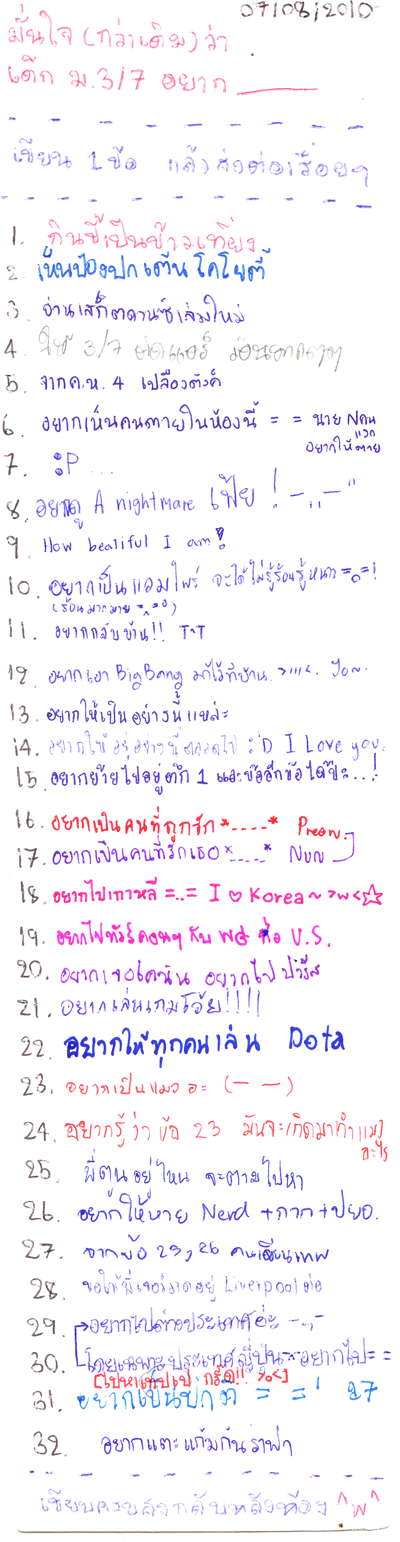 07/08/2010
มั่นใจ (กว่าเดิม) ว่า
เด็ก ม.3/7 อยาก
เขียน 1 ข้อ แล้วส่งต่อเรื่อยๆ
1. กินขี้เป็นข้าวเที่ยง
2. เห็นป๋องปกเต้นโคโยตี้
3. อ่านเสก็ตดานซ์เล่มใหม่
4. ให้ 3/7
5. จากค.ห. 4 เปลืองตังค์
6. อยากเห็นคนตายในห้องนี้ = = นาย
อยากให้ตาย
7. :P ...
8. อยากดู A nightmare เฟ้ย ! -,,-"
9. How beatiful I am!
10. อยากเป็นแวมไพร์ จะได้ไม่รู้ร้อนรู้หนาว =o=!
(ร้อนมากมาย =_=)
11. อยากกลับบ้าน!! T^T
12. อยากเอา BigBang มาไว้ที่บ้าน >////< Yo~
13. อยากให้เป็นอย่างนี้แหล่ะ
14. อยากให้อยู่อย่างนี้ตลอดไป :'D I Love you.
15. อยากย้ายไปอยู่ตึก 1 และขออีกข้อได้ป๊ะ...!
16. อยากเป็นคนที่ถูกรัก *....* Preaw
17. อยากเป็นคนที่รักเธอ *....* Nun
18. อยากไปเกาหลี =..= I ♡ Korea~ >w<☆
19. อยากไปทัวร์คอนฯ กับ พส ที่ U.S.
20. อยากเจอโคนัน อยากไปปารีส
21. อยากเล่นเกมโว้ย!!!!
22. อยากให้ทุกคนเล่น Dota
23. อยากเป็นแมวอะ (— —)
24. อยากรู้ว่าข้อ 23 มันจะเกิดมาทำแมว
อะไร
25. พี่ตูนอยู่ไหน จะตามไปหา
26. อยากให้นาย Nerd + กาก + ปยอ.
27. จากข้อ 25, 26 คนเขียนเทพ
28. ขอให้พี่เจอร์ราดอยู่ Liverpool ต่อ
29. อยากไปต่างประเทศอ่ะ -.,-
30. โดยเฉพาะประเทศญี่ปุ่น~อยากไป= =
[ไปหาเทปเป กรี๊ด!! >o<]
31. อยากเป็นปกติ = =' 27
32. อยากแตะแก้มก้นราฟา
เขียนครบส่งกลับหลังห้อง ^w^